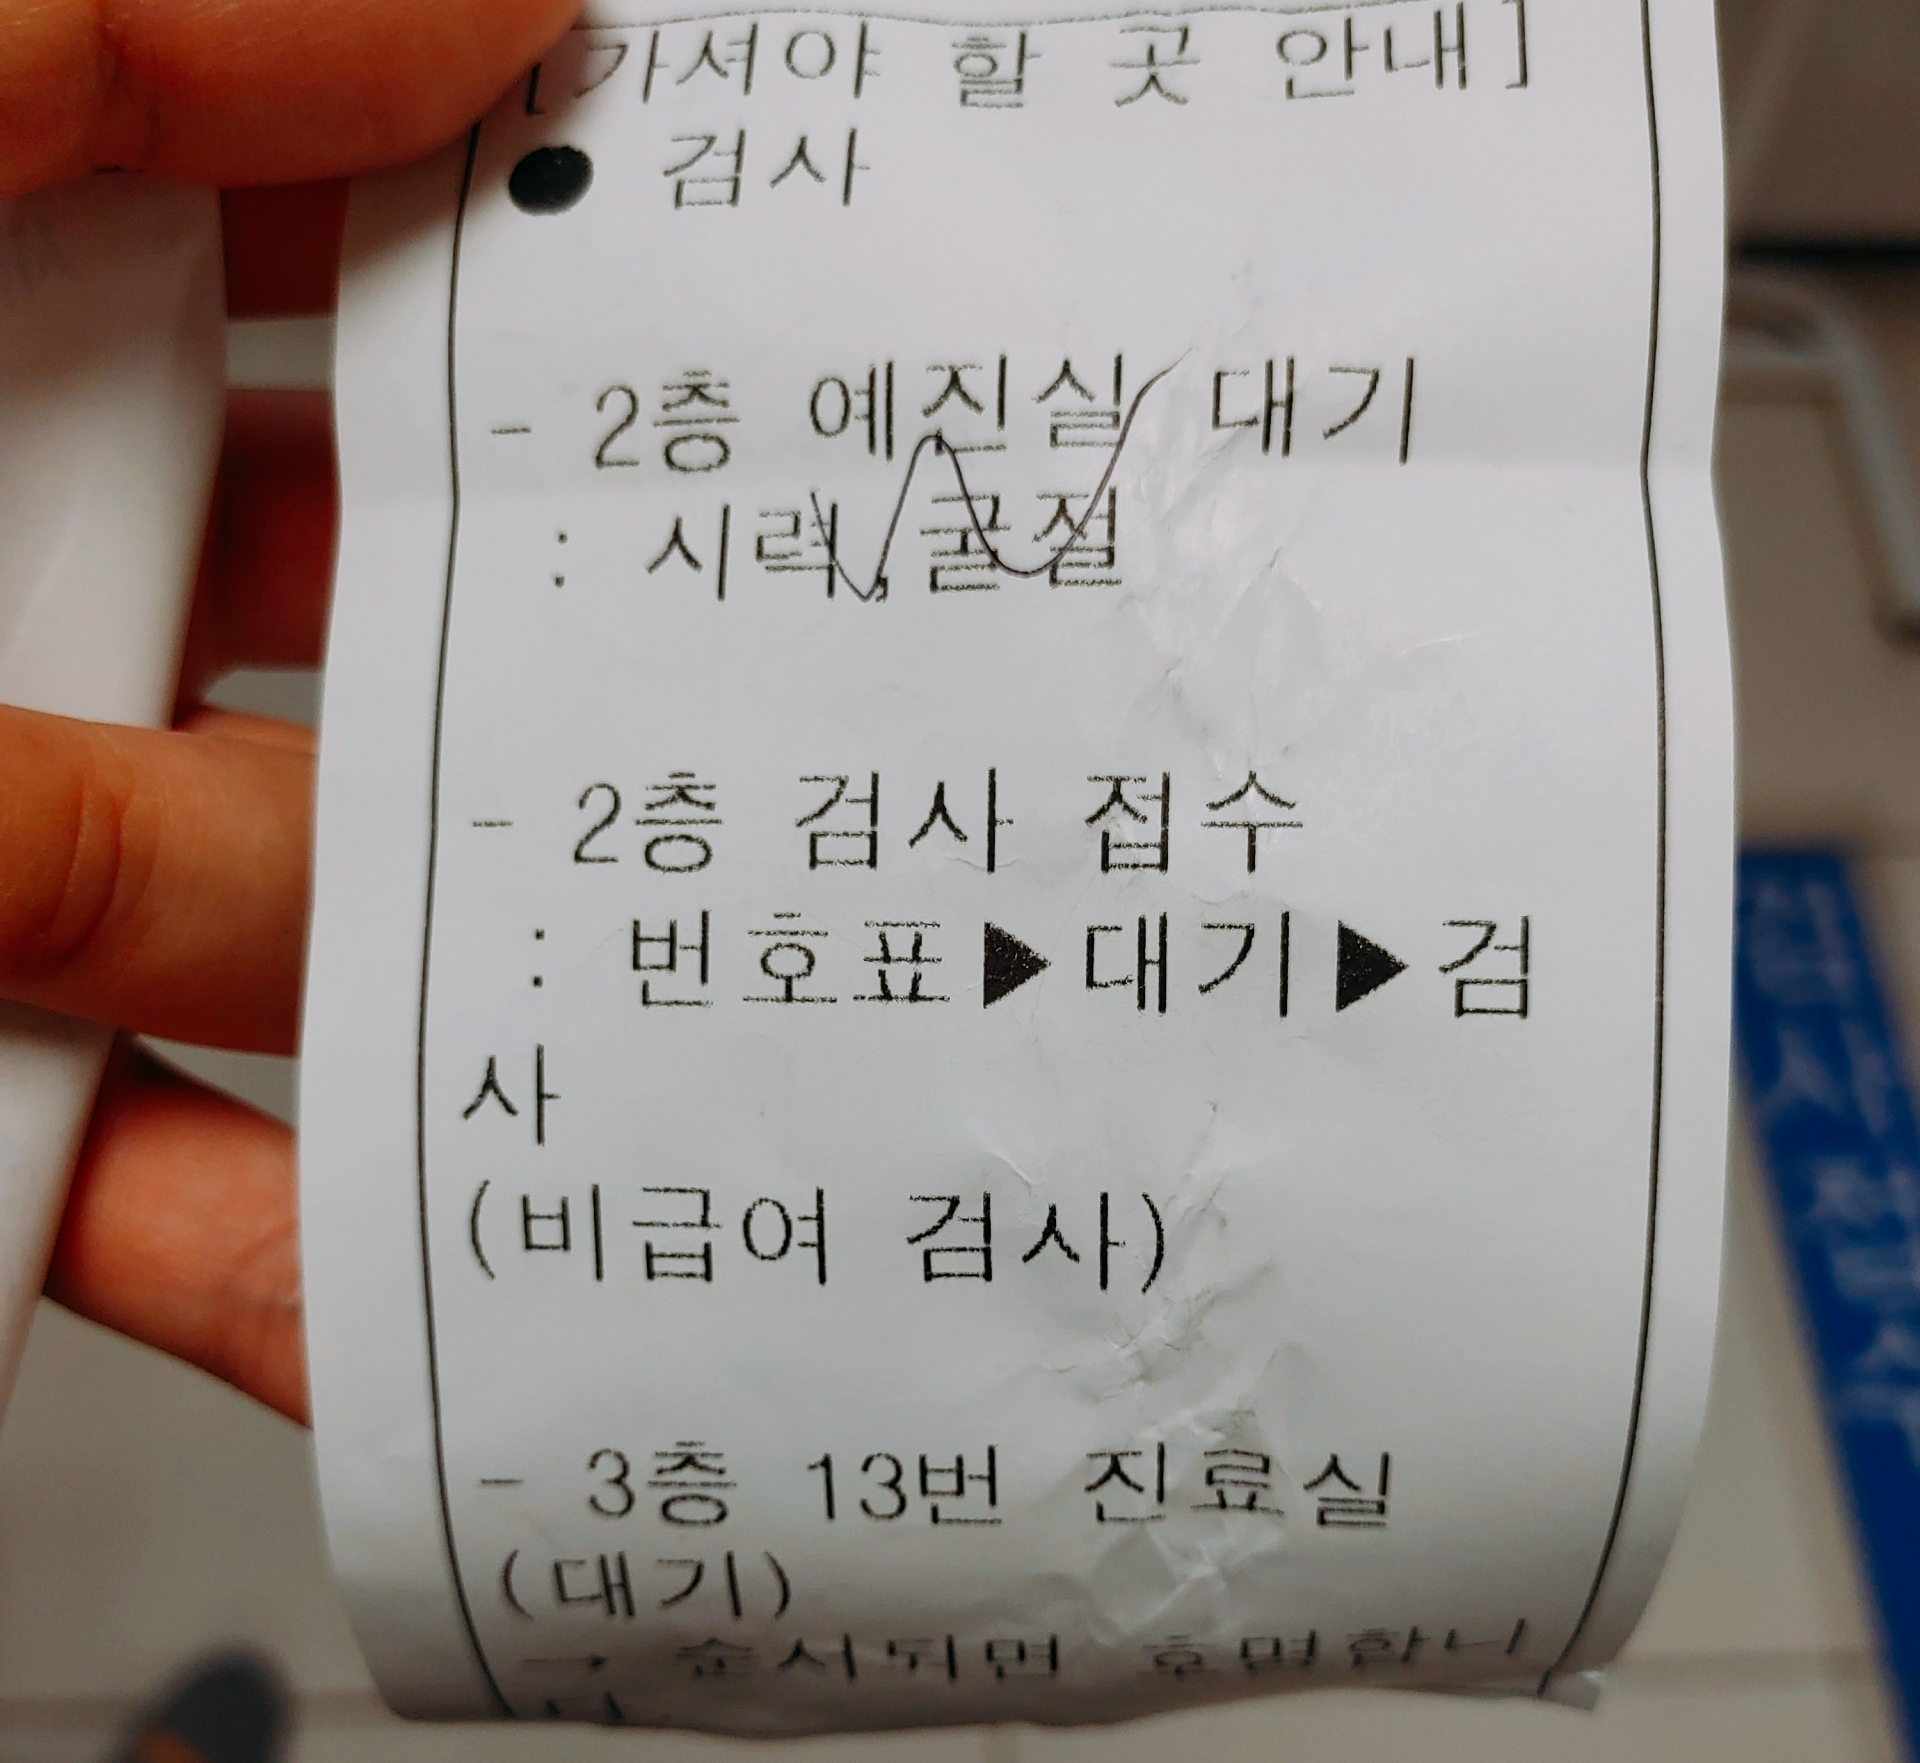 [가셔야 할 곳 안내]
● 검사
- 2층 예진실 대기
: 시력,굴절
- 2층 검사 접수
: 번호표▶대기▶검
사
(비급여 검사)
- 3층 13번 진료실
(대기)
→ 순서되면 호명합니
다